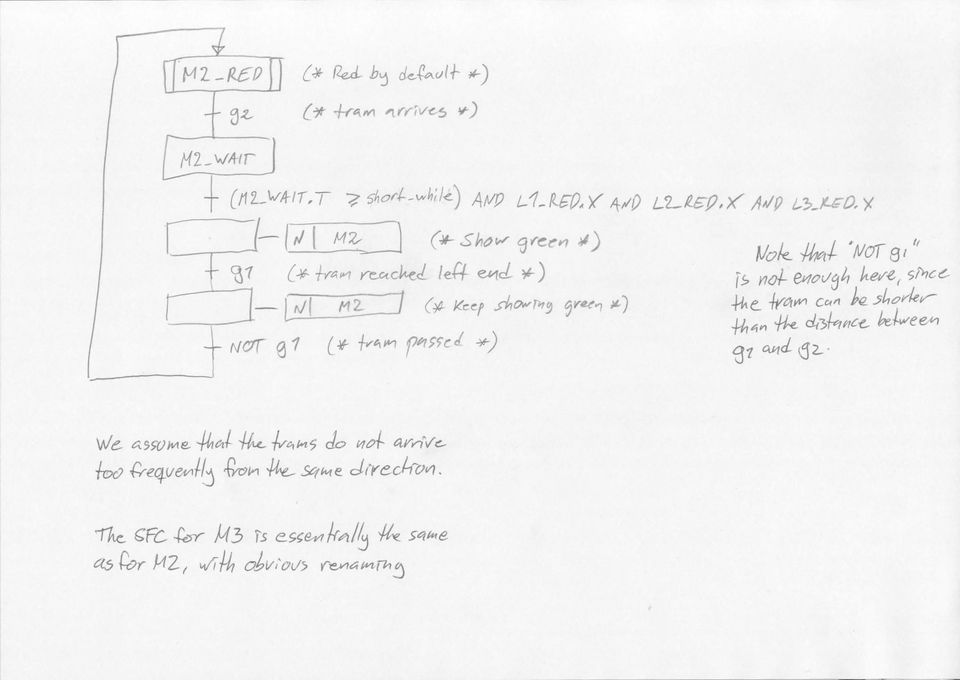 M2_RED (* Red by default *)
g2 (* tram arrives *)
M2_WAIT
(M2_WAIT.T ≥ short_while) AND L1_RED.X AND L2_RED.X AND L3_RED.X
N M2 (* Show green *)
g1 (* tram reached left end *)
N M2 (* Keep showing green *)
NOT g1 (* tram passed *)
Note that "NOT g1"
is not enough here, since
the tram can be shorter
than the distance between
g1 and g2.
We assume that the trams do not arrive
too frequently from the same direction.
The SFC for M3 is essentially the same
as for M2, with obvious renaming